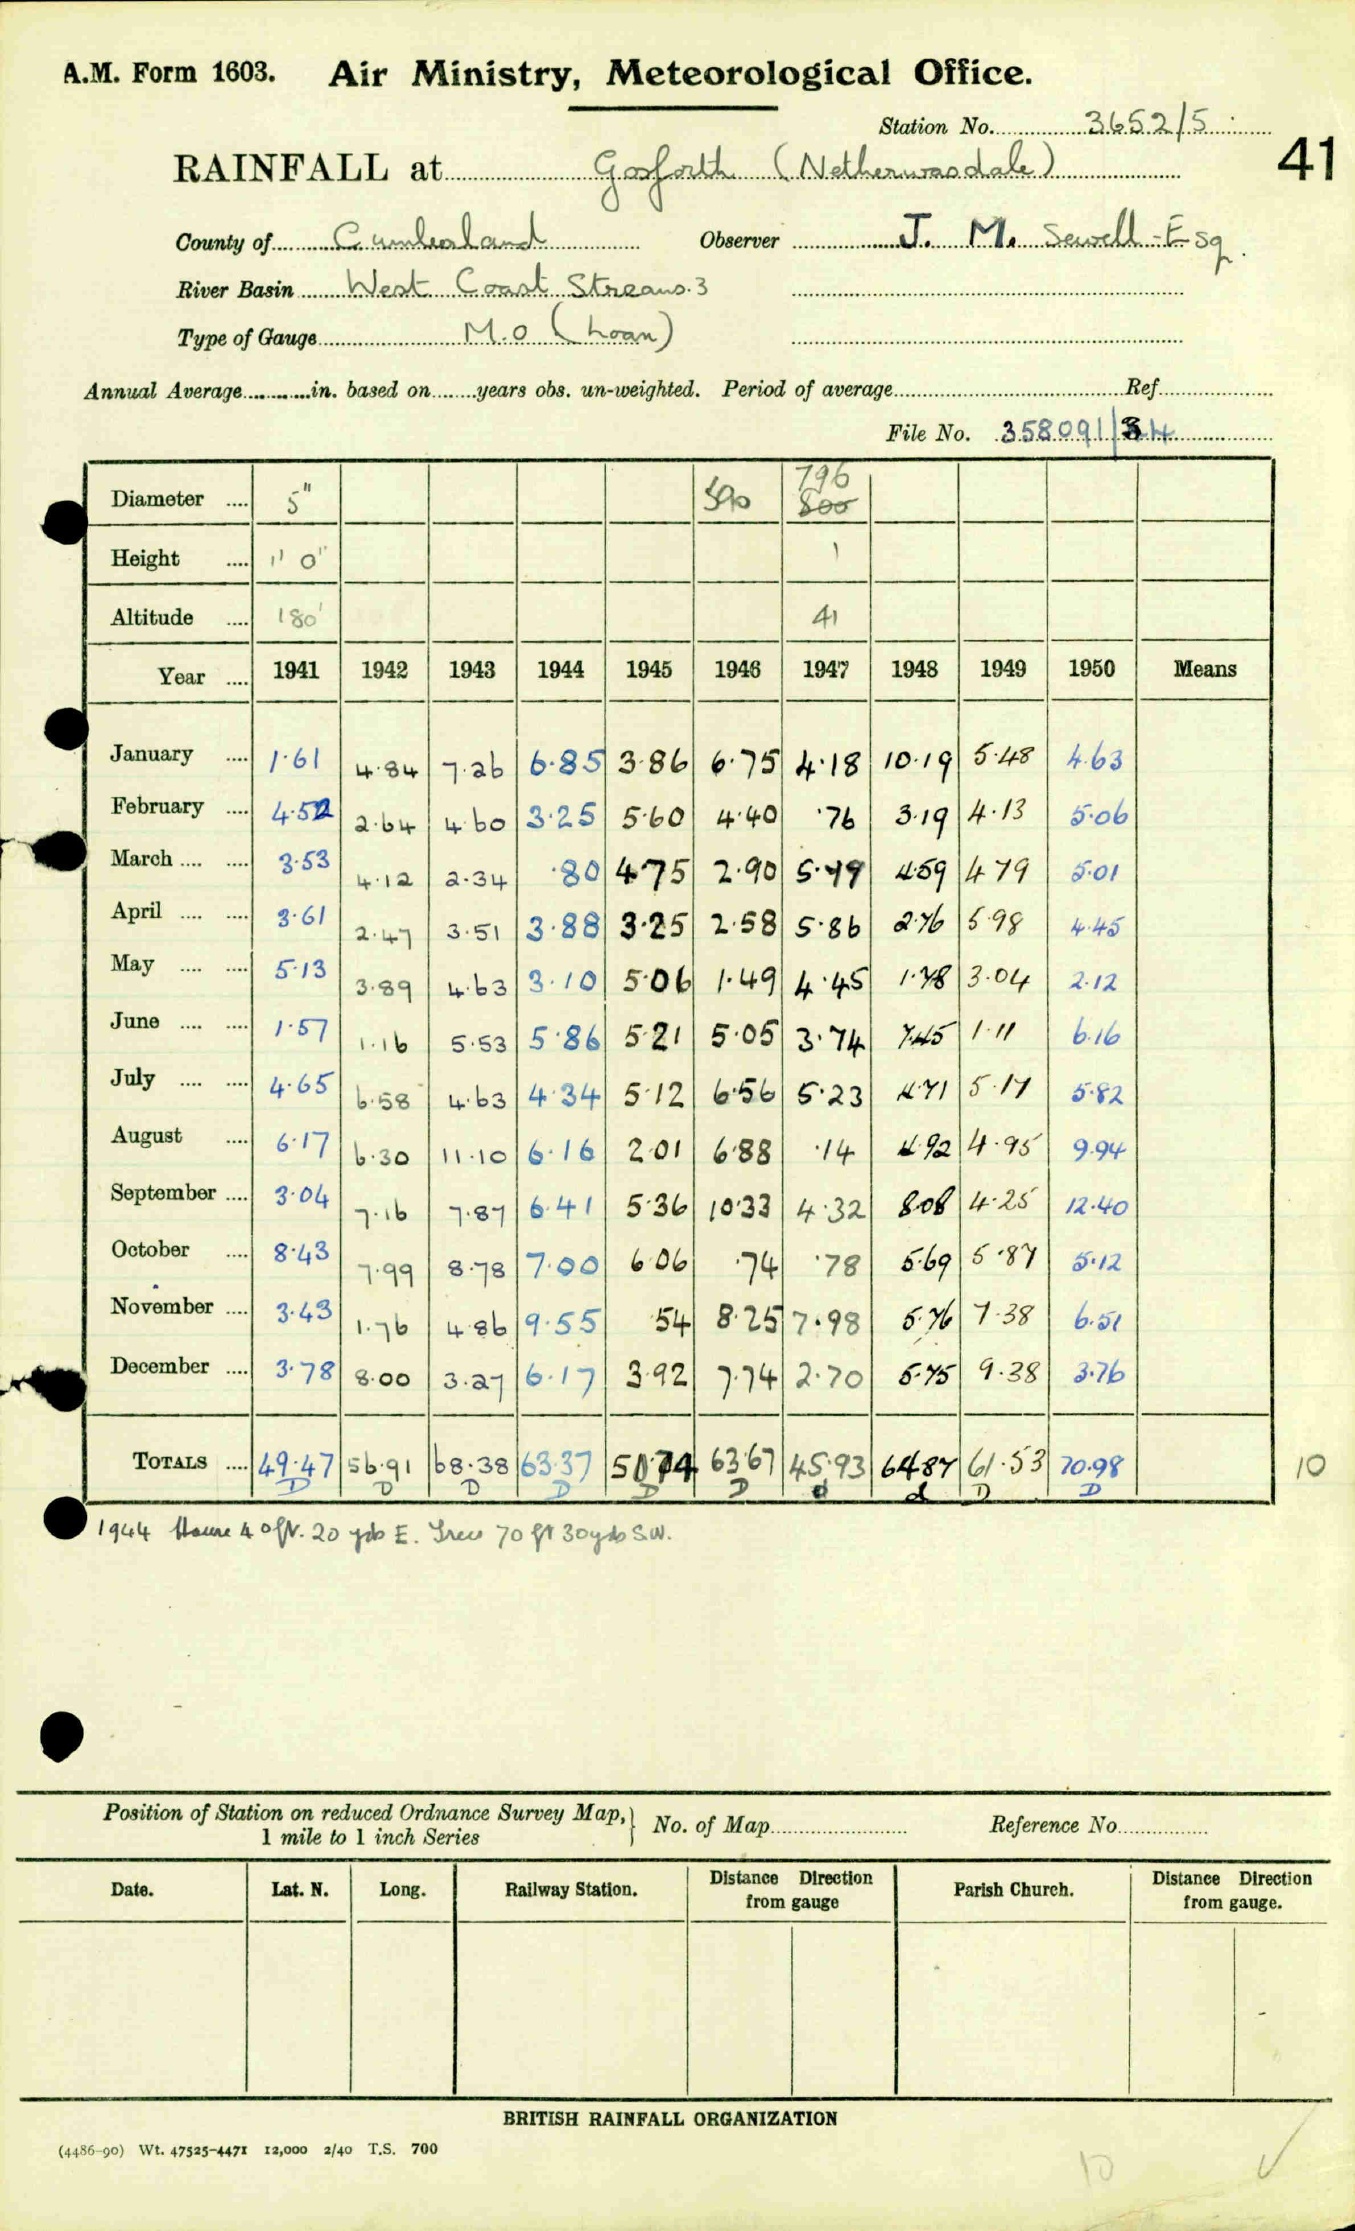 A.M. Form 1603. Air Ministry, Meteorological Office.
Station No. 3652/5
41
RAINFALL at Gosforth (Netherwasdale)
County of Cumberland Observer J. M. Sewell Esq.
River Basin West Coast Streams. 3
Type of Gauge M.O (Loan)
Annual Average in. based on years obs. un-weighted. Period of average Ref
File No. 358091/34
796
Diameter .... 5" 590 800
Height .... 1' 0" 1
Altitude .... 180' 41
Year .... 1941 1942 1943 1944 1945 1946 1947 1948 1949 1950 Means
January .... 1·61 4·84 7·26 6·85 3·86 6·75 4·18 10·19 5·48 4·63
February .... 4·52 2·64 4·60 3·25 5·60 4·40 ·76 3·19 4·13 5·06
March .... .... 3·53 4·12 2·34 ·80 4·75 2·90 5·79 4·59 4·79 5·01
April .... .... 3·61 2·47 3·51 3·88 3·25 2·58 5·86 2·76 5·98 4·45
May .... .... 5·13 3·89 4·63 3·10 5·06 1·49 4·45 1·78 3·04 2·12
June .... .... 1·57 1·16 5·53 5·86 5·21 5·05 3·74 7·45 1·11 6·16
July .... .... 4·65 6·58 4·63 4·34 5·12 6·56 5·23 4·71 5·17 5·82
August .... 6·17 6·30 11·10 6·16 2·01 6·88 ·14 4·92 4·95 9·94
September .... 3·04 7·16 7·87 6·41 5·36 10·33 4·32 8·08 4·25 12·40
October .... 8·43 7·99 8·78 7·00 6·06 ·74 ·78 5·69 5·87 5·12
November .... 3·43 1·76 4·86 9·55 54 8·25 7·98 5·76 7·38 6·51
December .... 3·78 8·00 3·27 6·17 3·92 7·74 2·70 5·75 9·38 3·76
TOTALS .... 49·47 56·91 68·38 63·37 50·74 63·67 45·93 64·87 61·53 70·98 10
D D D D D D d d D D
1944 House 40ft. 20 yds E. Trees 70 ft 30yds S.W.
Position of Station on reduced Ordnance Survey Map, 
1 mile to 1 inch Series
No. of Map Reference No
Date. Lat. N. Long. Railway Station. Distance Direction from gauge Parish Church. Distance Direction from gauge.
BRITISH RAINFALL ORGANIZATION
(4486-90) Wt. 47525-4471 12,000 2/40 T.S. 700
10